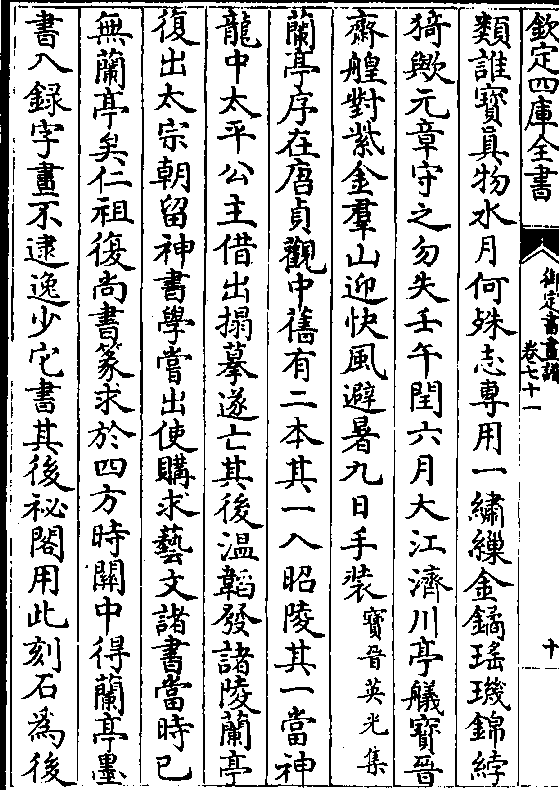 欽定四庫全書
御定書畫譜
卷七十一
十
類誰寶真物水月何殊志專用一繡繅金鐍瑤璣錦綍
猗歟元章守之勿失壬午閏六月大江濟川亭艤寶晉
齋艎對紫金羣山迎快風避暑九日手裝寶晉英光集
蘭亭序在唐貞觀中舊有二本其一入昭陵其一當神
龍中太平公主借出搨摹遂亡其後温韜發諸陵蘭亭
復出太宗朝留神書學嘗出使購求藝文諸書當時已
無蘭亭矣仁祖復尚書篆求於四方時關中得蘭亭墨
書入録字畫不逮逸少它書其後祕閣用此刻石為後